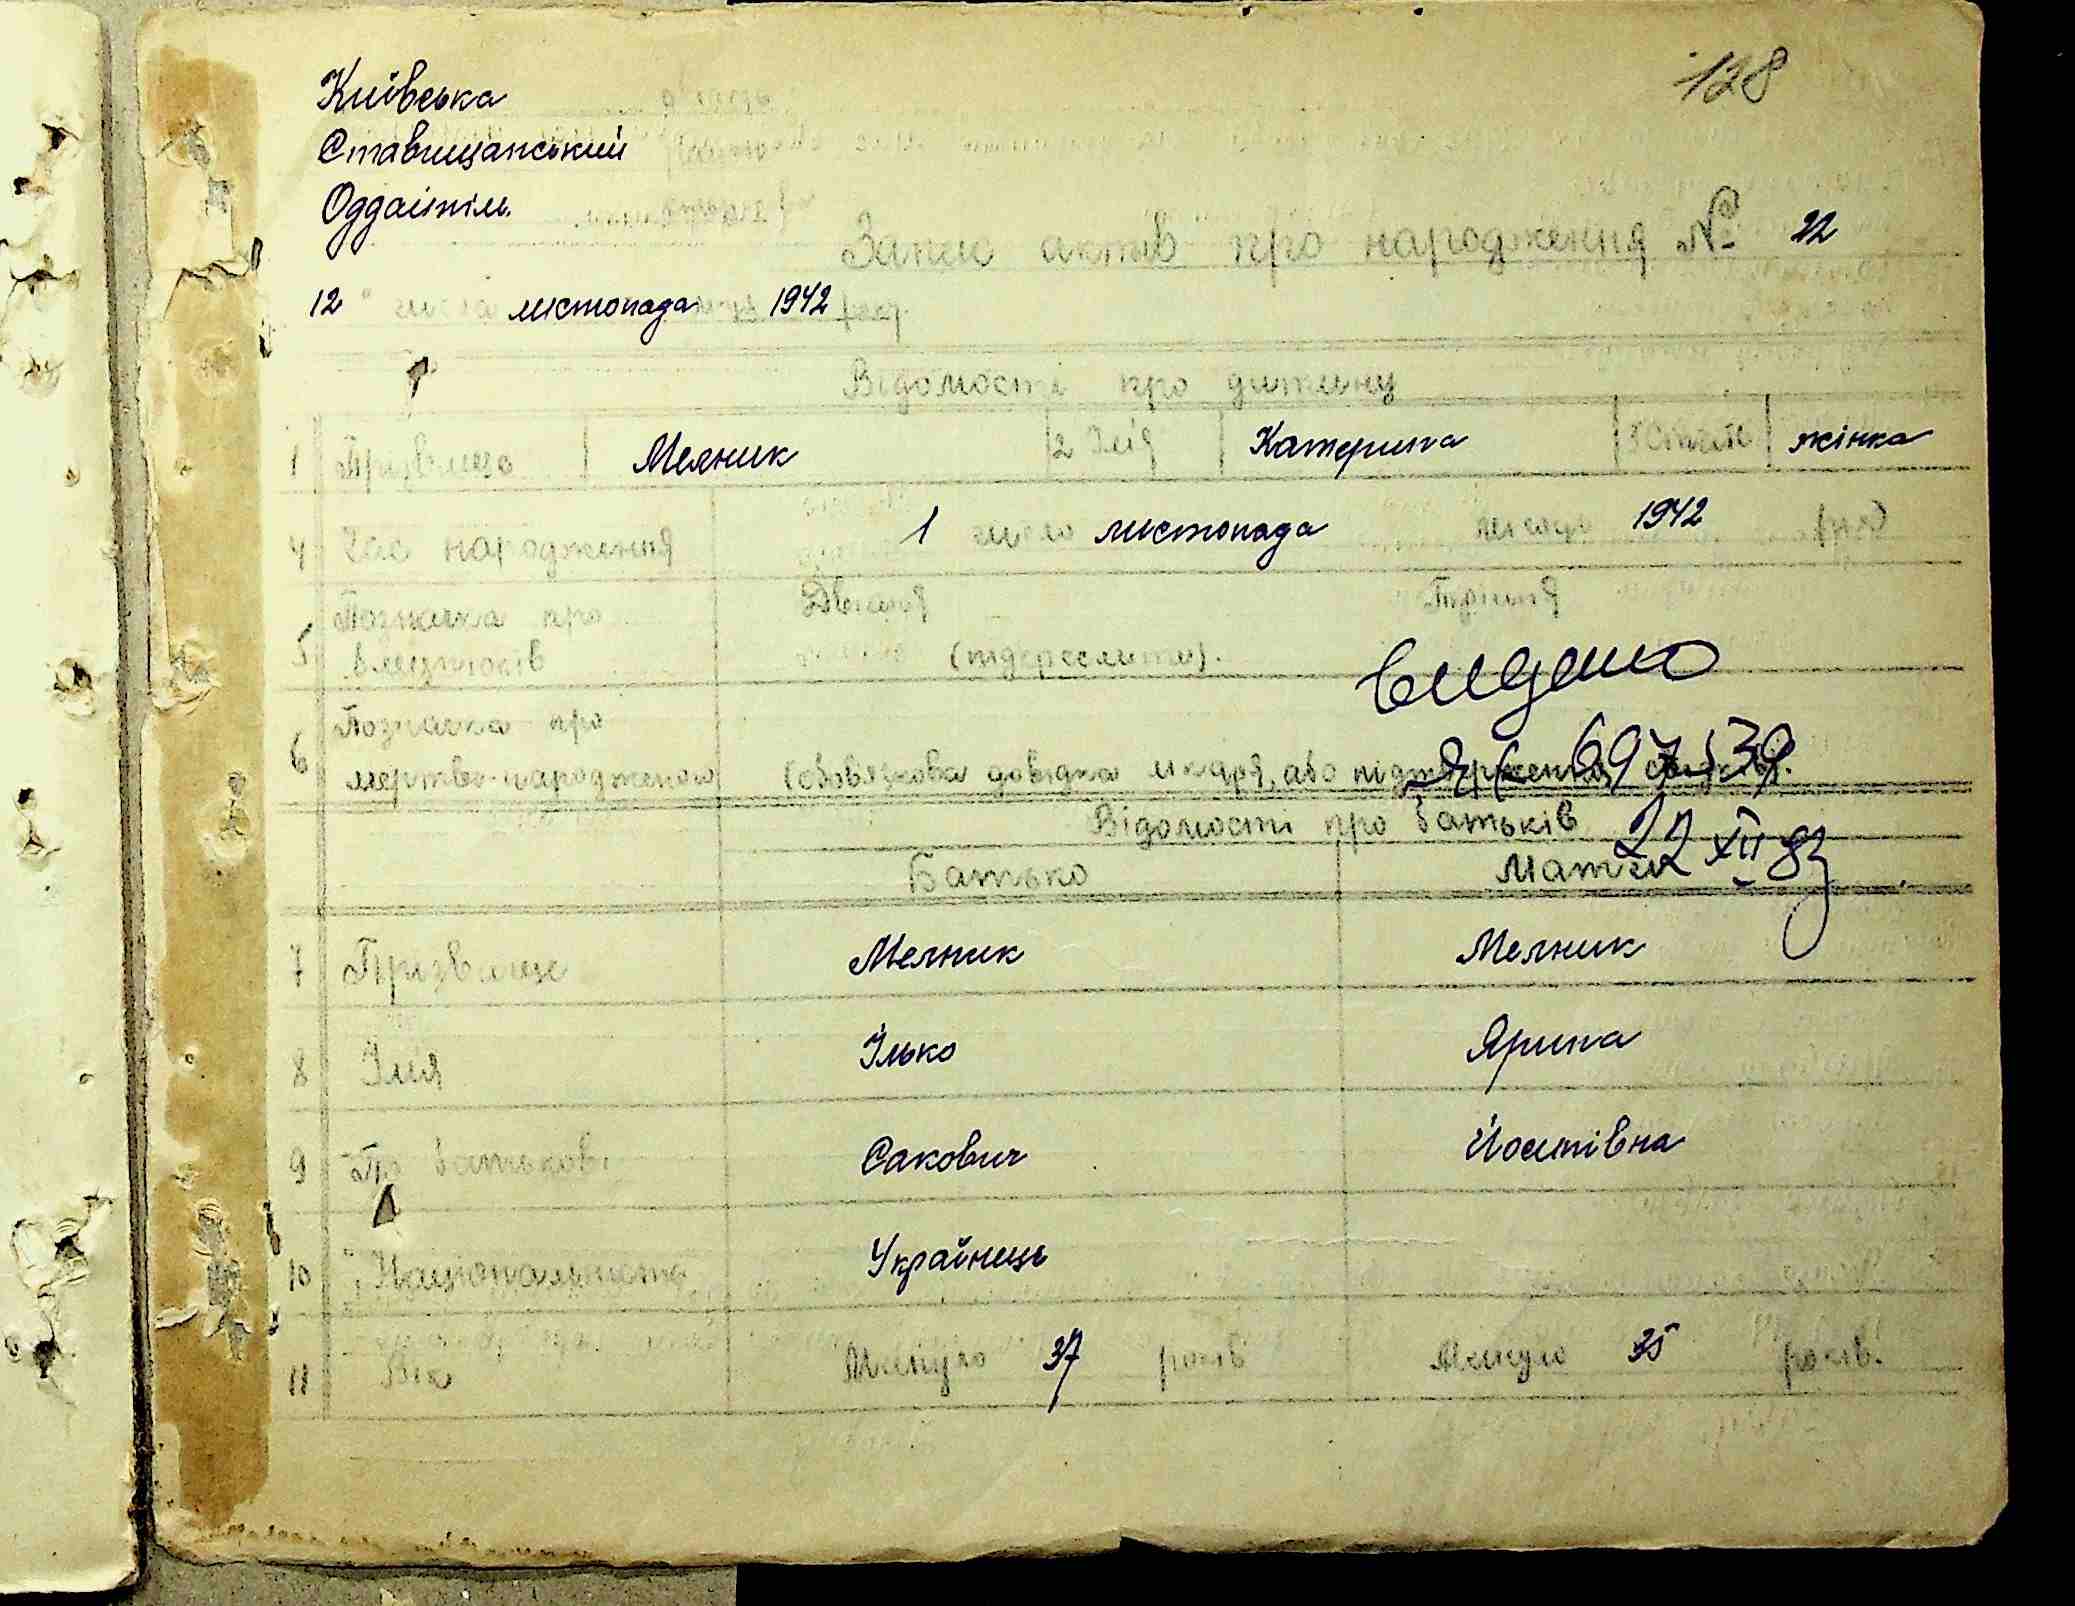 128
Київська
Ставищанський
Оддаипіль
Запис актів про народження № 22
12 " числа листопада 1942 року.
Відомості про дитину
1 Прізвище Мелник 2 Імя Катерина 3 Стать жінка
4 Час народження 1 число листопада місяця 1942 року
5 Позначка про Двійня Трійня
близнюків (підкреслити).
видано
6 Позначка про
мертво-народженого (обовязкова довідка лікаря, або підтвердження свідків).
697539
22 XII 83
Відомості про батьків
Батько Мати
7 Прізвище Мелник Мелник
8 Імя Ілько Ярина
9 По батькові Сакович Йоситівна
10 Національність Українець
11 Вік Минуло 37 років Минуло 35 років.